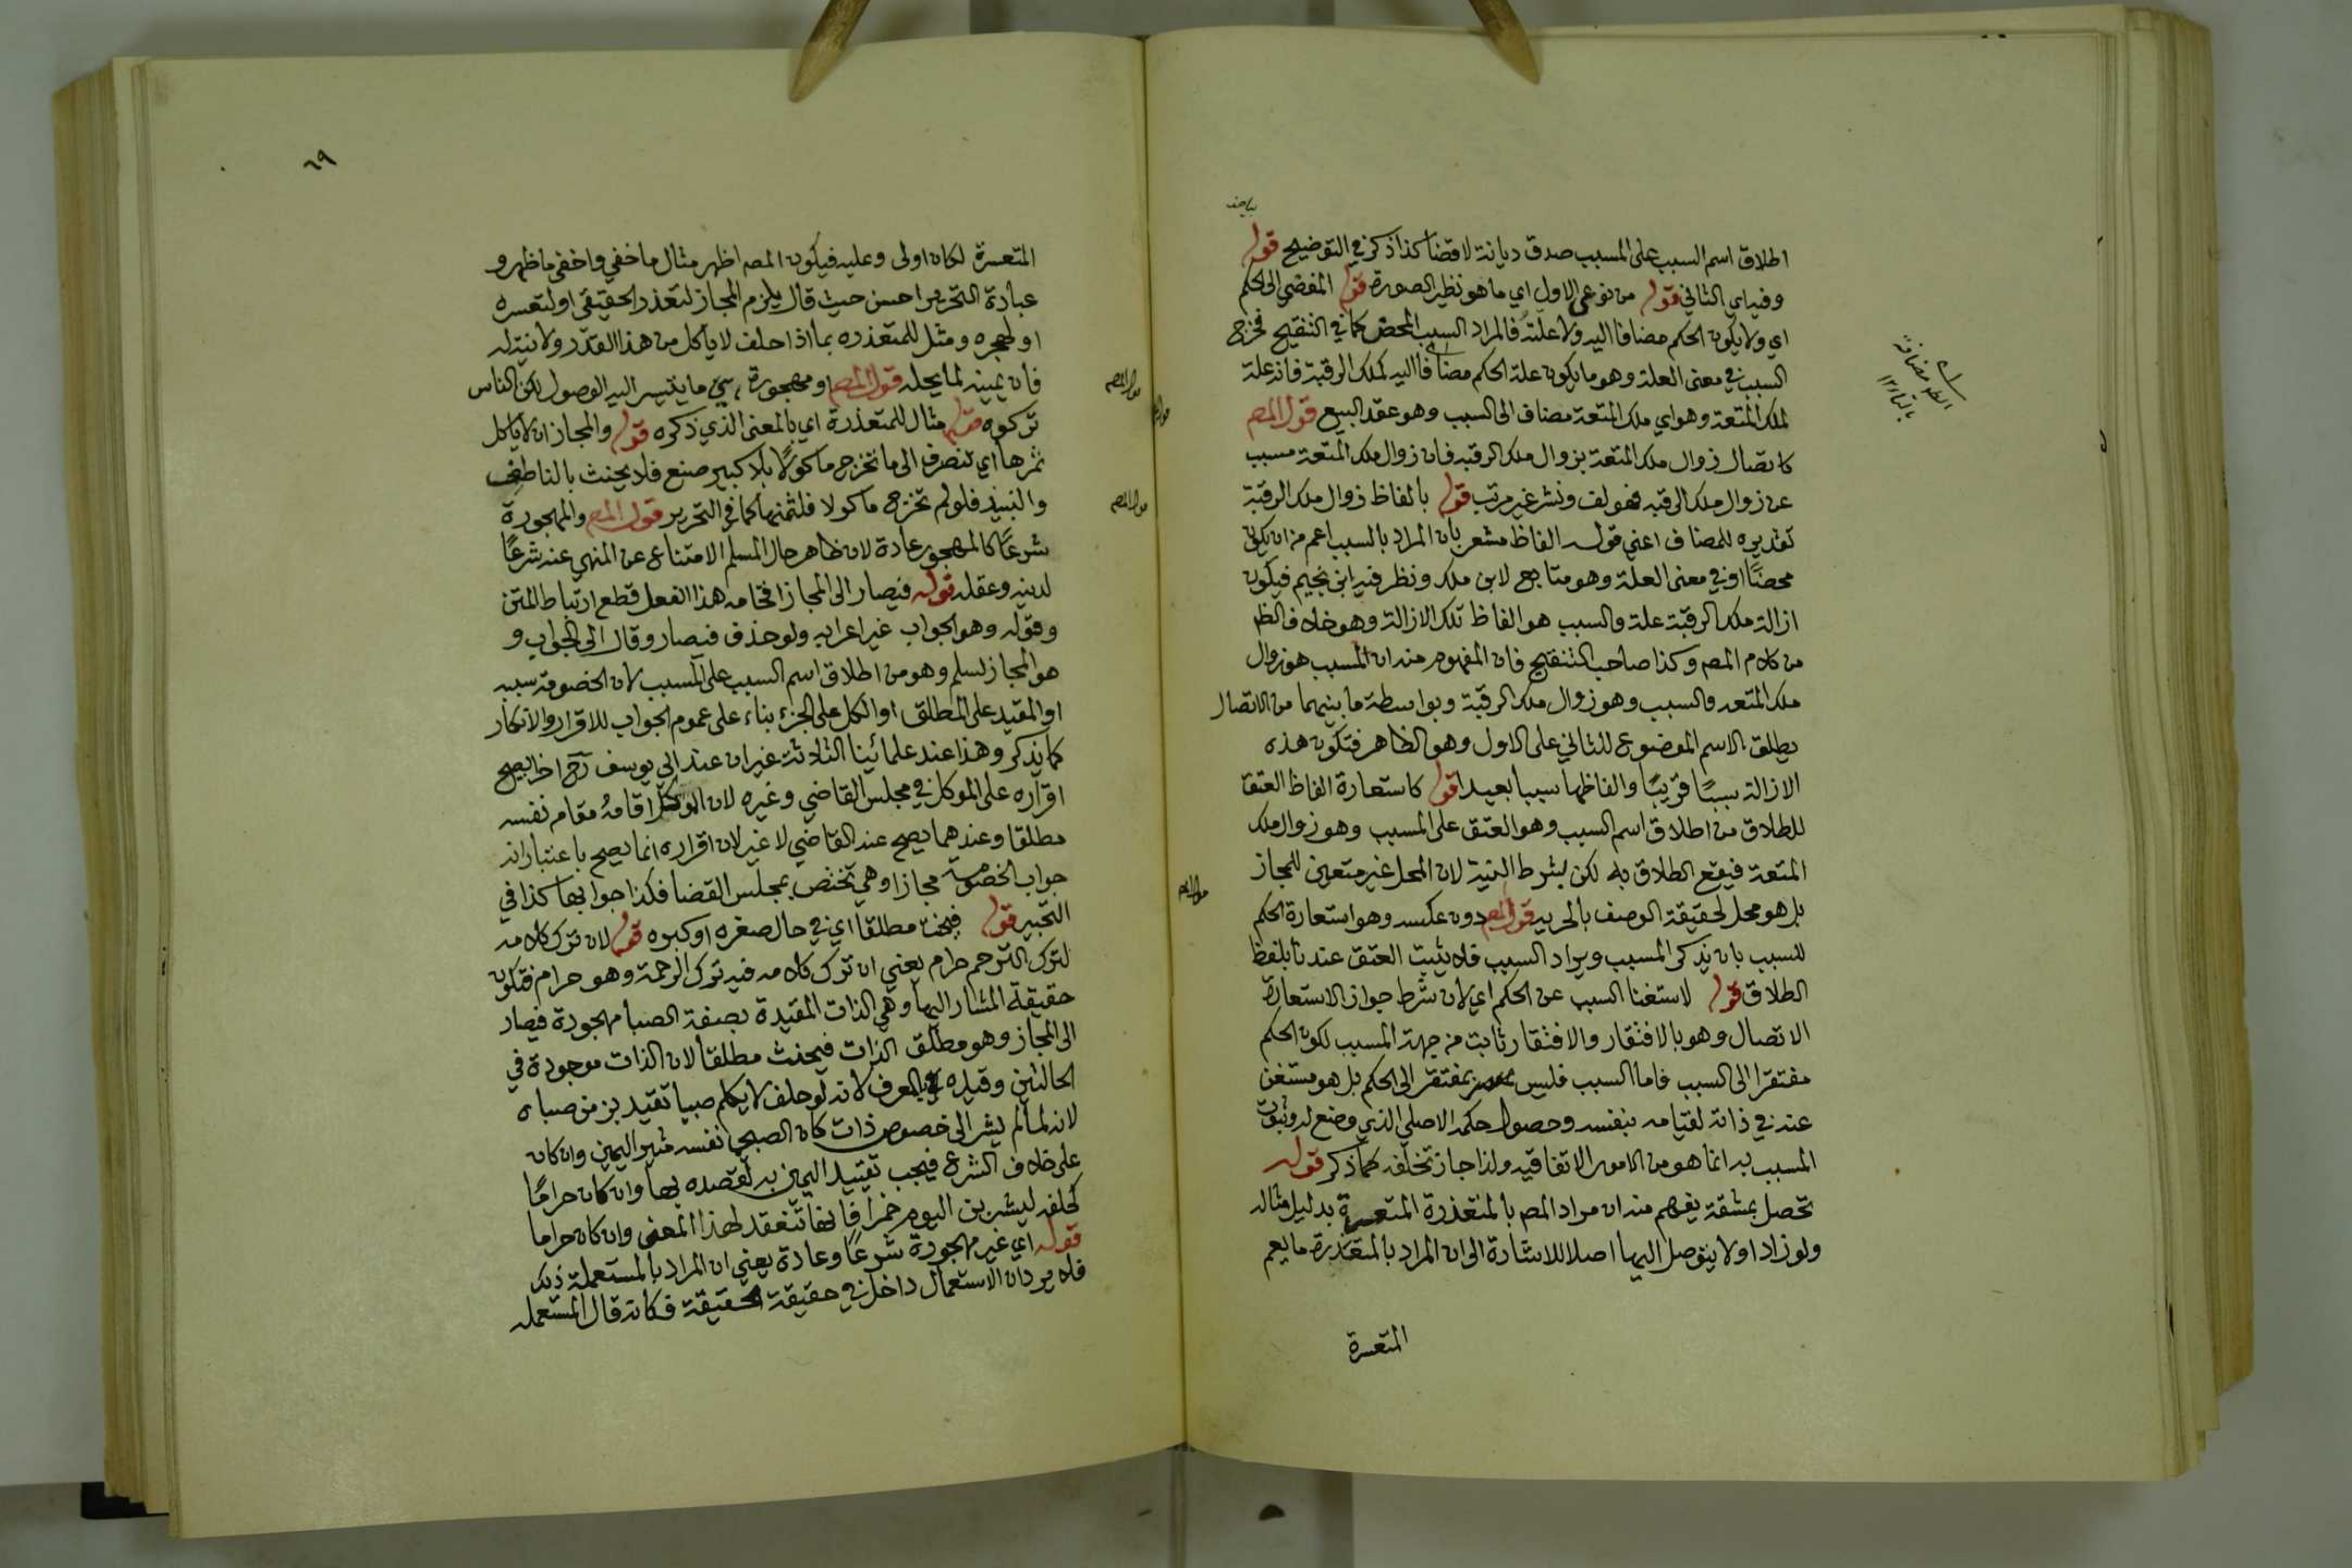 اطلاق اسم السبب على المسبب صدق ديانة لا قضا كذا ذكر في التوضيح قوله
وفيا اي الثاني قوله من نوعي الاول اي ما هو نظير الصورة قوله المفضي الى الحكم
اي ولا يكون الحكم مضافا اليه ولا علته فالمراد السبب المحض كما في التنقيح فخرج
السبب في معنى العلة وهو ما يكون علة الحكم مضافا اليه كملك الرقبة فانه علة
لملك المتعة وهو اي ملك المتعة مضاف الى السبب وهو عقد البيع قول المص
كاتصال زوال ملك المتعة بزوال ملك الرقبه فان زوال ملك المتعة مسبب
عن زوال ملك الرقبه فهو لف ونشر غير مرتب قوله بالفاظ زوال ملك الرقبة
تقديره للمضاف اعني قوله الفاظ مشعر بان المراد بالسبب اعم من ان يكون
محضا او في معنى العلة وهو متابع لابن ملك ونظر فيه ابن نجيم فيكون
ازالة ملك الرقبة علة والسبب هو الفاظ تلك الازالة وهو خلاف الظ
من كلام المص وكذا صاحب التنقيح فان المفهوم منه ان المسبب هو زوال
ملك المتعه والسبب وهو زوال ملك الرقبة وبواسطة ما بينهما من الاتصال
يطلق الاسم الموضوع للثاني على الاول وهو الظاهر فتكون هذه
الازالة سببًا قريبًا والفاظها سببا بعيدا قوله كاستعارة الفاظ العتق
للطلاق من اطلاق اسم السبب وهو العتق على المسبب وهو زوال ملك
المتعة فيقع الطلاق به لكن بشرط النية لان المحل غير متعين للمجاز
بل هو محل لحقيقة الوصف بالحريه قول المص دون عكسه وهو استعارة الحكم
للسبب بان يذكر المسبب ويراد السبب فلا يثبت العتق عندنا بلفظ
الطلاق قوله لاستغنا السبب عن الحكم اي لان شرط جواز الاستعارة
الاتصال وهو بالافتقار والافتقار ثابت من جهة المسبب لكون الحكم
مفتقرا الى السبب فاما السبب فليس بمفتقر الى الحكم بل هو مستغن
عنه في ذاته لقيامه بنفسه وحصول حكمه الاصلي الذي وضع له وثبوت
المسبب به انما هو من الامور الاتفاقيه ولذا جاز تخلفه كما ذكر قوله
تحصل بمشقة يفهم منه ان مراد المص بالمتعذرة المتعسرة بدليل مثاله
ولو زاد او لا يتوصل اليها اصلا للاشارة الى ان المراد بالمتعذرة ما يعم
المتعسرة
٦٩
المتعسرة لكان اولى وعليه فيكون المص اظهر مثال ما خفي واخفى ما ظهر و
عبارة التحرير احسن حيث قال يلزم المجاز لتعذر الحقيقي او لتعسره
او لهجره ومثل للمتعذره بما اذا حلف لا ياكل من هذا القدر ولا نية له
فان يمينه لما يحله قول المص او مهجورة هي ما يتيسر اليه الوصول لكن الناس
تركوه قوله مثال للمتعذرة اي بالمعنى الذي ذكره قوله والمجاز ان لا ياكل
ثمرها اي تنصرف الى ما تخرج ماكولًا بلا كبير صنع فلا يحنث بالناطف
والنبيذ فلو لم تخرج ماكولا فلثمنها كما في التحرير قول المص والمهجورة
شرعًا كالمهجور عادة لان ظاهر حال المسلم الامتناع عن المنهي عنه شرعًا
لدينه وعقله قوله فيصار الى المجاز اقحامه هذا الفعل قطع ارتباط المتن
وقوله وهو الجواب غير اعرابه ولو حذف فيصار وقال الى الجواب و
هو المجاز لسلم وهو من اطلاق اسم السبب على المسبب لان الخصومة سببه
او المقيد على المطلق او الكل على الجزء بناء على عموم الجواب للاقرار والانكار
كما يذكر وهذا عند علمائينا الثلاثة غير ان عند ابي يوسف رح اخرا يصح
اقراره على الموكل في مجلس القاضي وغيره لان الموكل اقامه مقام نفسه
مطلقا وعندهما يصح عند القاضي لا غير لان اقراره انما يصح باعتبار انه
جواب الخصومة مجازا وهي تختص بمجلس القضا فكذا جوابها كذا في
التحبير قوله فيحنث مطلقا اي في حال صغره او كبره قوله لان ترك كلامه
لترك الترحم حرام يعني ان ترك كلامه فيه ترك الرحمة وهو حرام فتكون
حقيقة المشار اليها وهي الذات المقيدة بصفة الصبا مهجورة فيصار
الى المجاز وهو مطلق الذات فيحنث مطلقا لان الذات موجودة في
الحالتين وقيده بالعرف لانه لو حلف لا يكلم صبيا تقيد بزمن صباه
لانه لما لم يشر الى خصوص ذات كان الصبى نفسه مثير اليمين وان كان
على خلاف الشرع فيجب تقييد اليمين به لقصده بها وان كان حرامًا
كحلفه ليشربن اليوم خمرا فانها تنعقد لهذا المعنى وان كان حراما
قوله اي غير مهجورة شرعًا وعادة يعني ان المراد بالمستعملة ذلك
فلا يرد ان الاستعمال داخل في حقيقة الحقيقة فكانه قال المستعمله
قول المص
قول المص
قول المص